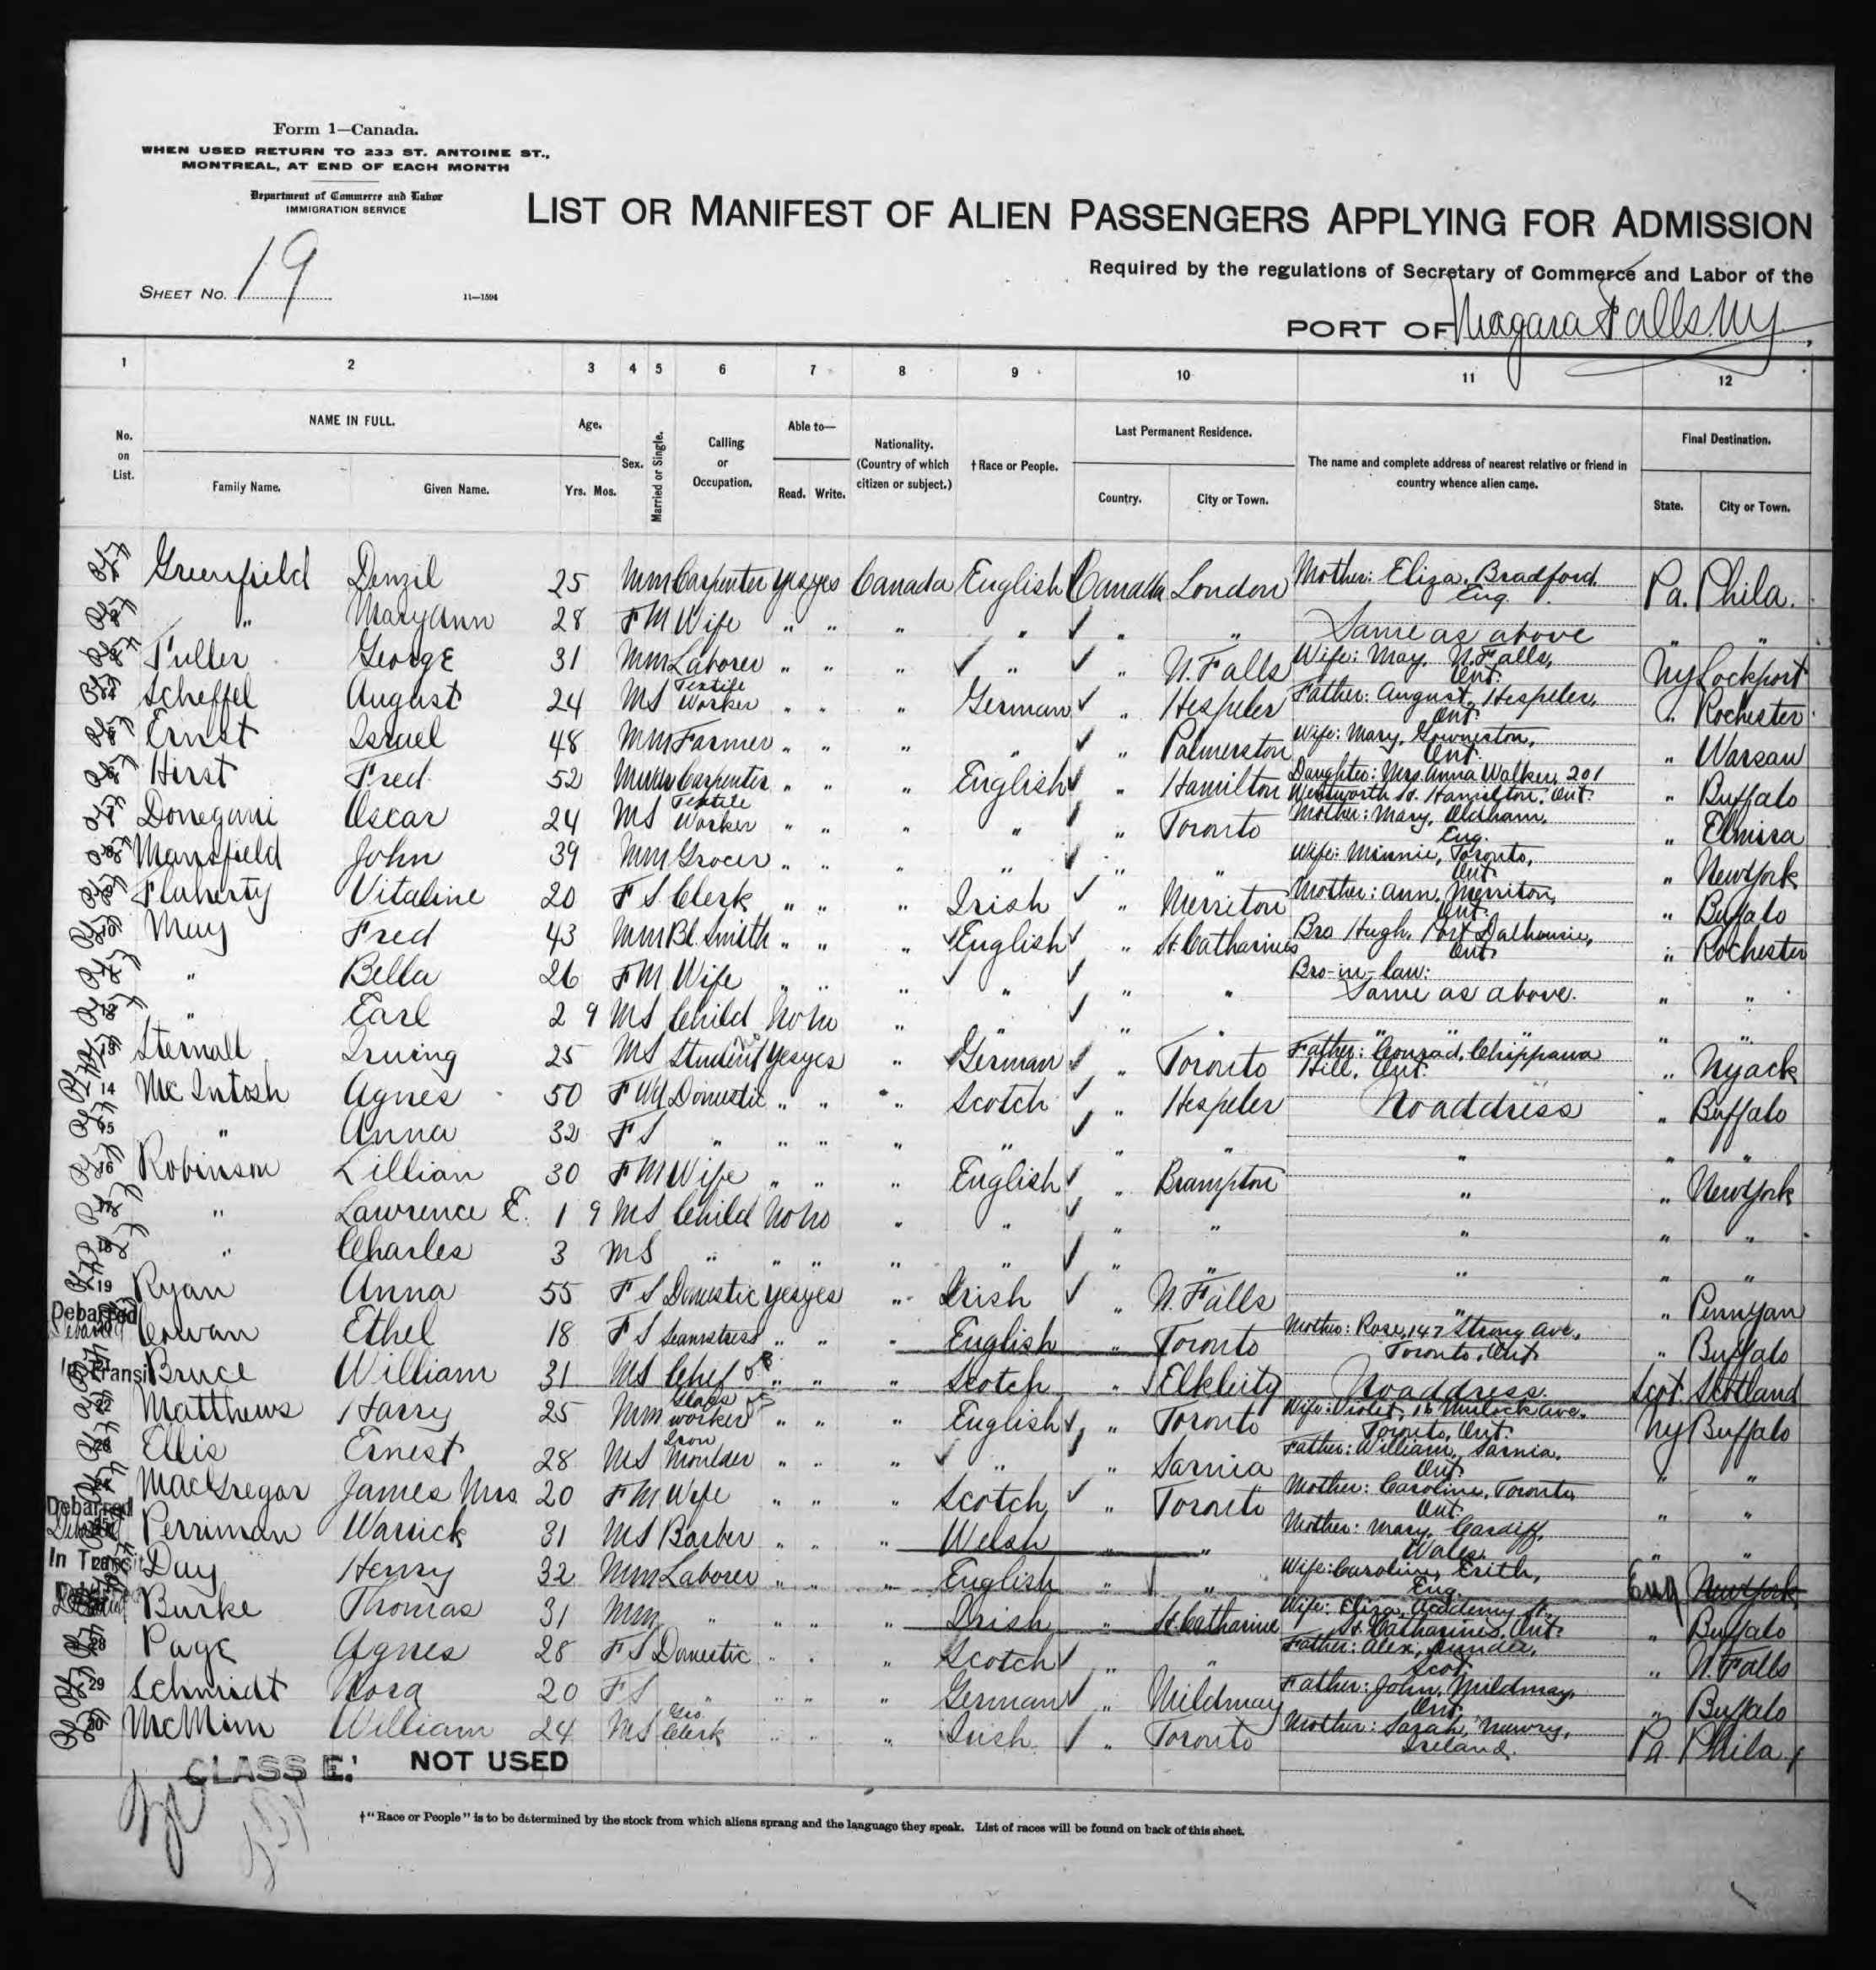 Form 1—Canada.
WHEN USED RETURN TO 233 ST. ANTOINE ST.,
MONTREAL, AT END OF EACH MONTH
Department of Commerce and Labor
IMMIGRATION SERVICE
LIST OR MANIFEST OF ALIEN PASSENGERS APPLYING FOR ADMISSION
Required by the regulations of Secretary of Commerce and Labor of the
SHEET No. 19
11—1594
PORT OF Niagara Falls NY,
1 2 3 4 5 6 7 8 9 10 11 12
No. on List.
NAME IN FULL.
Family Name. Given Name.
Age.
Yrs. Mos.
Sex.
Married or Single.
Calling or Occupation.
Able to—
Read. Write.
Nationality. (Country of which citizen or subject.)
†Race or People.
Last Permanent Residence.
Country. City or Town.
The name and complete address of nearest relative or friend in country whence alien came.
Final Destination.
State. City or Town.
Greenfield Denzil 25 M M Carpenter yes yes Canada English Canada London Mother: Eliza, Bradford, Eng. Pa. Phila.
" Mary Ann 28 F M Wife " " " " " " Same as above " "
Fuller George 31 M M Laborer " " " " " N. Falls Wife: May, N. Falls, Ont. NY Lockport
Scheffel August 24 M S Textile Worker " " " German " Hespeler Father: August, Hespeler, Ont. " Rochester
Ernst Israel 48 M M Farmer " " " " " Palmerston Wife: Mary, Gowneston, Ont. " Warsaw
Hirst Fred 52 M Wd Carpenter " " " English " Hamilton Daughter: Mrs. Anna Walker, 201 Wentworth St. Hamilton, Ont. " Buffalo
Donegani Oscar 24 M S Textile Worker " " " " " Toronto Mother: Mary, Oldham, Eng. " Elmira
Mansfield John 39 M M Grocer " " " " " " Wife: Minnie, Toronto, Ont. " New York
Flaherty Vitaline 20 F S Clerk " " " Irish " Merriton Mother: Ann, Merriton, Ont. " Buffalo
May Fred 43 M M Bl. Smith " " " English " St. Catharines Bro Hugh, Port Dalhousie, Ont. " Rochester
" Bella 26 F M Wife " " " " " " Bro-in-law: Same as above. " "
" Earl 2 9 M S Child No No " " " " " " " "
Sternall Irving 25 M S Student yes yes " German " Toronto Father: Conrad, Chippawa Hill, Ont. " Nyack
14 McIntosh Agnes 50 F Wd Domestic " " " Scotch " Hespeler No address " Buffalo
15 " Anna 32 F S " " " " " " " " " "
16 Robinson Lillian 30 F M Wife " " " English " Brampton " " New York
" Lawrence E. 1 9 M S Child No No " " " " " " "
18 " Charles 3 M S " " " " " " " " " "
19 Ryan Anna 55 F S Domestic yes yes " Irish " N. Falls " " Penn Yan
Debarred Cowan Ethel 18 F S Seamstress " " " English " Toronto Mother: Rose, 147 Strong Ave, Toronto, Ont. " Buffalo
In Transit Bruce William 31 M S Chef " " " Scotch " Elk City No address. Scot. Scotland
22 Matthews Harry 25 M M Glass worker " " " English " Toronto Wife: Violet, 16 Mulock Ave. Toronto, Ont. NY Buffalo
23 Ellis Ernest 28 M S Iron Moulder " " " " " Sarnia Father: William, Sarnia, Ont. " "
MacGregor James Mrs 20 F M Wife " " " Scotch " Toronto Mother: Caroline, Toronto, Ont. " "
Debarred Perriman Warrick 31 M S Barber " " " Welsh " " Mother: Mary, Cardiff, Wales. " "
In Transit Day Henry 32 M M Laborer " " " English " " Wife: Caroline, Erith, Eng. Eng New York
Burke Thomas 31 M M " " " " Irish " St. Catharine Wife: Eliza, Academy St. St. Catharines, Ont. " Buffalo
28 Page Agnes 28 F S Domestic " " " Scotch " " Father: Alex, Dundee, Scot. " N. Falls
29 Schmidt Nora 20 F S " " " " German " Mildmay Father: John, Mildmay, Ont. " Buffalo
30 McMinn William 24 M S Gro. Clerk " " " Irish " Toronto Mother: Sarah, Newry, Ireland. Pa. Phila.
CLASS E. NOT USED
†"Race or People" is to be determined by the stock from which aliens sprang and the language they speak. List of races will be found on back of this sheet.